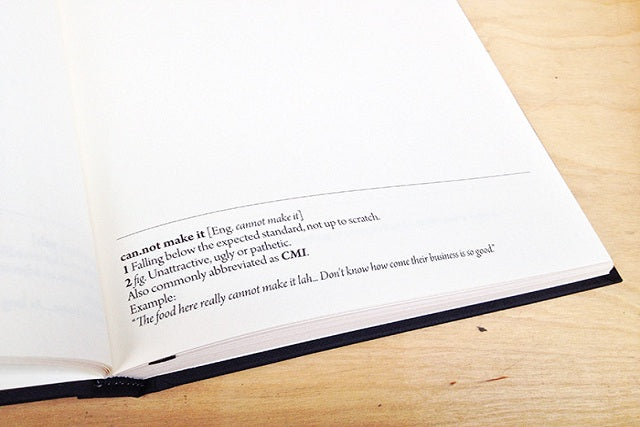 can.not make it [Eng. cannot make it]
1 Falling below the expected standard, not up to scratch.
2 fig. Unattractive, ugly or pathetic.
Also commonly abbreviated as CMI.
Example:
“The food here really cannot make it lah... Don't know how come their business is so good.”